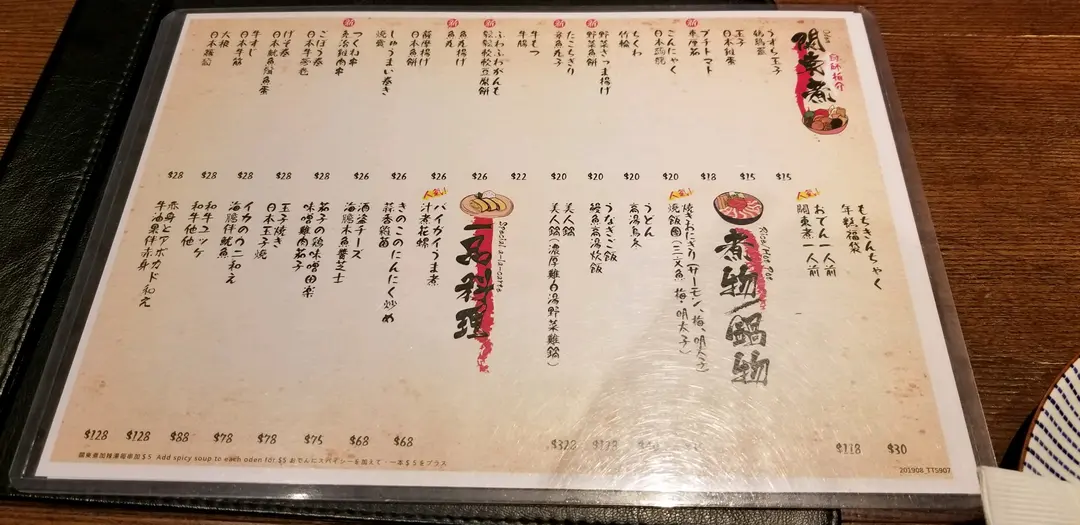 Oden
關東煮
廚師推介
うずら玉子
鶉鶉蛋
$15
玉子
日本雞蛋
$15
プチトマト
車厘茄
$18
こんにゃく
$20
ちくわ
竹輪
$20
新
野菜さつま揚げ
野菜魚餅
$20
新
たこちぎり
章魚丸子
$20
牛もつ
牛腸
$22
新
ふわふわがんも
鬆鬆軟軟豆腐餅
$26
新
魚丸揚げ
魚丸
$26
薩摩揚げ
日本魚餅
$26
しゅうまい巻き
燒賣
$26
新
つくね串
免治雞肉串
$28
ごぼう巻
日本牛蒡卷
$28
げそ巻
日本魷魚鬚魚蛋
$28
牛すじ
日本牛筋
$28
大根
日本蘿蔔
$28
もちきんちゃく
年糕福袋
$30
人氣
おでん一人前
關東煮一人前
$118
Rice/Hot Pot
煮物/鍋物
人氣
焼きおにぎり(サーモン、梅、明太子)
燒飯團(三文魚、梅、明太子)
うどん
高湯烏冬
うなぎご飯
鰻魚高湯炊飯
美人鍋
美人鍋(濃厚雞白湯野菜雞鍋)
$328
Special a-la-carte
一品料理
人氣
バイガイうま煮
汁煮花螺
$68
きのこのにんにく炒め
蒜香雜菌
$68
酒盗チーズ
海膽木魚醬芝士
$75
茄子の鶏味噌田楽
味噌雞肉茄子
$78
玉子焼き
日本玉子燒
$78
イカのウニ和え
海膽伴魷魚
$88
和牛ユッケ
和牛他他
$128
赤身とアボカド和え
牛油果伴赤身
$128
關東煮加辣湯每串加$5 Add spicy soup to each oden for $5 おでんにスパイシーを加えて・一本$5をプラス
201908_TTS907